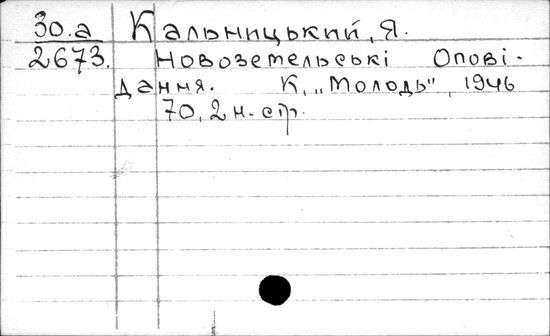 30.а Кальницький, Я.
2673. Новоземельські Опові-
дання. К, „Молодь", 1946
70, 2 н. стр.